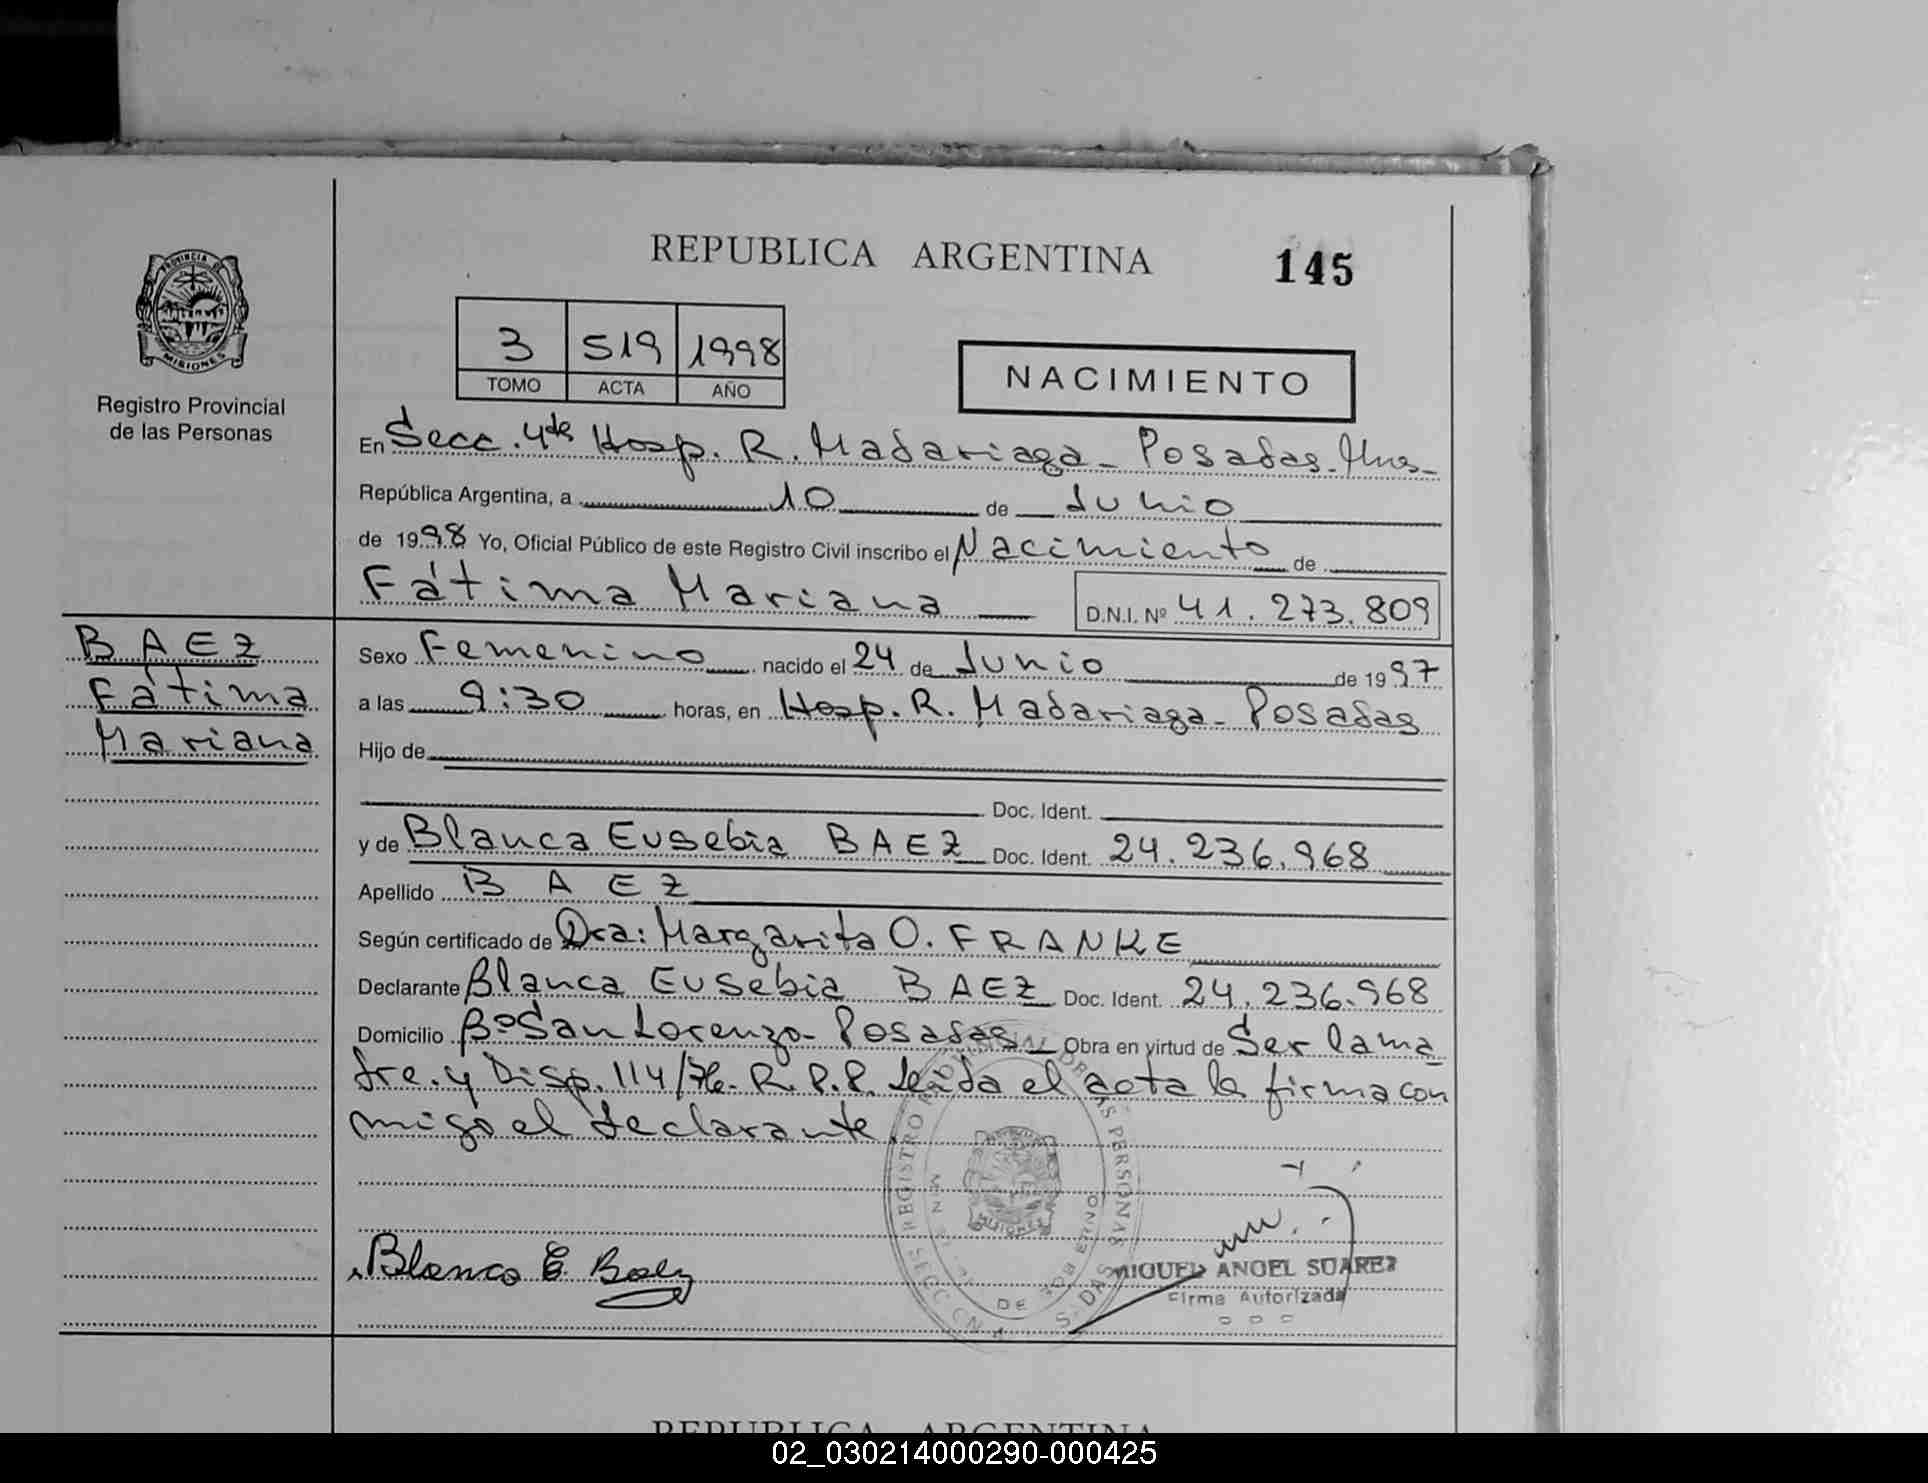 REPUBLICA ARGENTINA
145
PROVINCIA DE
MISIONES
Registro Provincial
de las Personas
3 519 1998
TOMO ACTA AÑO
NACIMIENTO
En Secc. 4ta Hosp. R. Madariaga - Posadas - Mnes -
República Argentina, a 10 de Junio
de 1998 Yo, Oficial Público de este Registro Civil inscribo el Nacimiento de
Fátima Mariana
D.N.I. Nº 41.273.809
BAEZ
Fátima
Mariana
Sexo Femenino nacido el 24 de Junio de 1997
a las 9:30 horas, en Hosp. R. Madariaga - Posadas
Hijo de
Doc. Ident.
y de Blanca Eusebia BAEZ Doc. Ident. 24.236.968
Apellido BAEZ
Según certificado de Dra: Margarita O. FRANKE
Declarante Blanca Eusebia BAEZ Doc. Ident. 24.236.968
Domicilio Bº San Lorenzo - Posadas - Obra en virtud de Ser la ma
dre. y Disp. 114/76 - R.P.P. Leida el acta la firma con
migo el declarante.
REGISTRO PERSONAS
MISIONES
DE
Blanca E. Baez
MIGUEL ANGEL SUAREZ
Firma Autorizada
REPUBLICA ARGENTINA
02_030214000290-000425